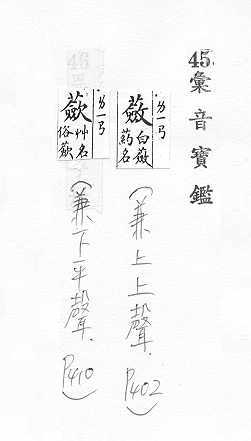 45.彙音寶鑑
ㄌㄧㄢ
蘞 白蘞
藥名
(兼上上聲. P402)
ㄌㄧㄢ
蘝 艸名
俗蘝
(兼下平聲. P410)